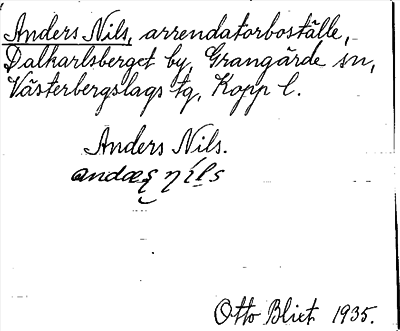 Anders Nils, arrendatorboställe,
Dalkarlsberget by, Grangärde sn,
Västerbergslags tg, Kopp l.
Anders Nils.
Otto Blixt 1935.